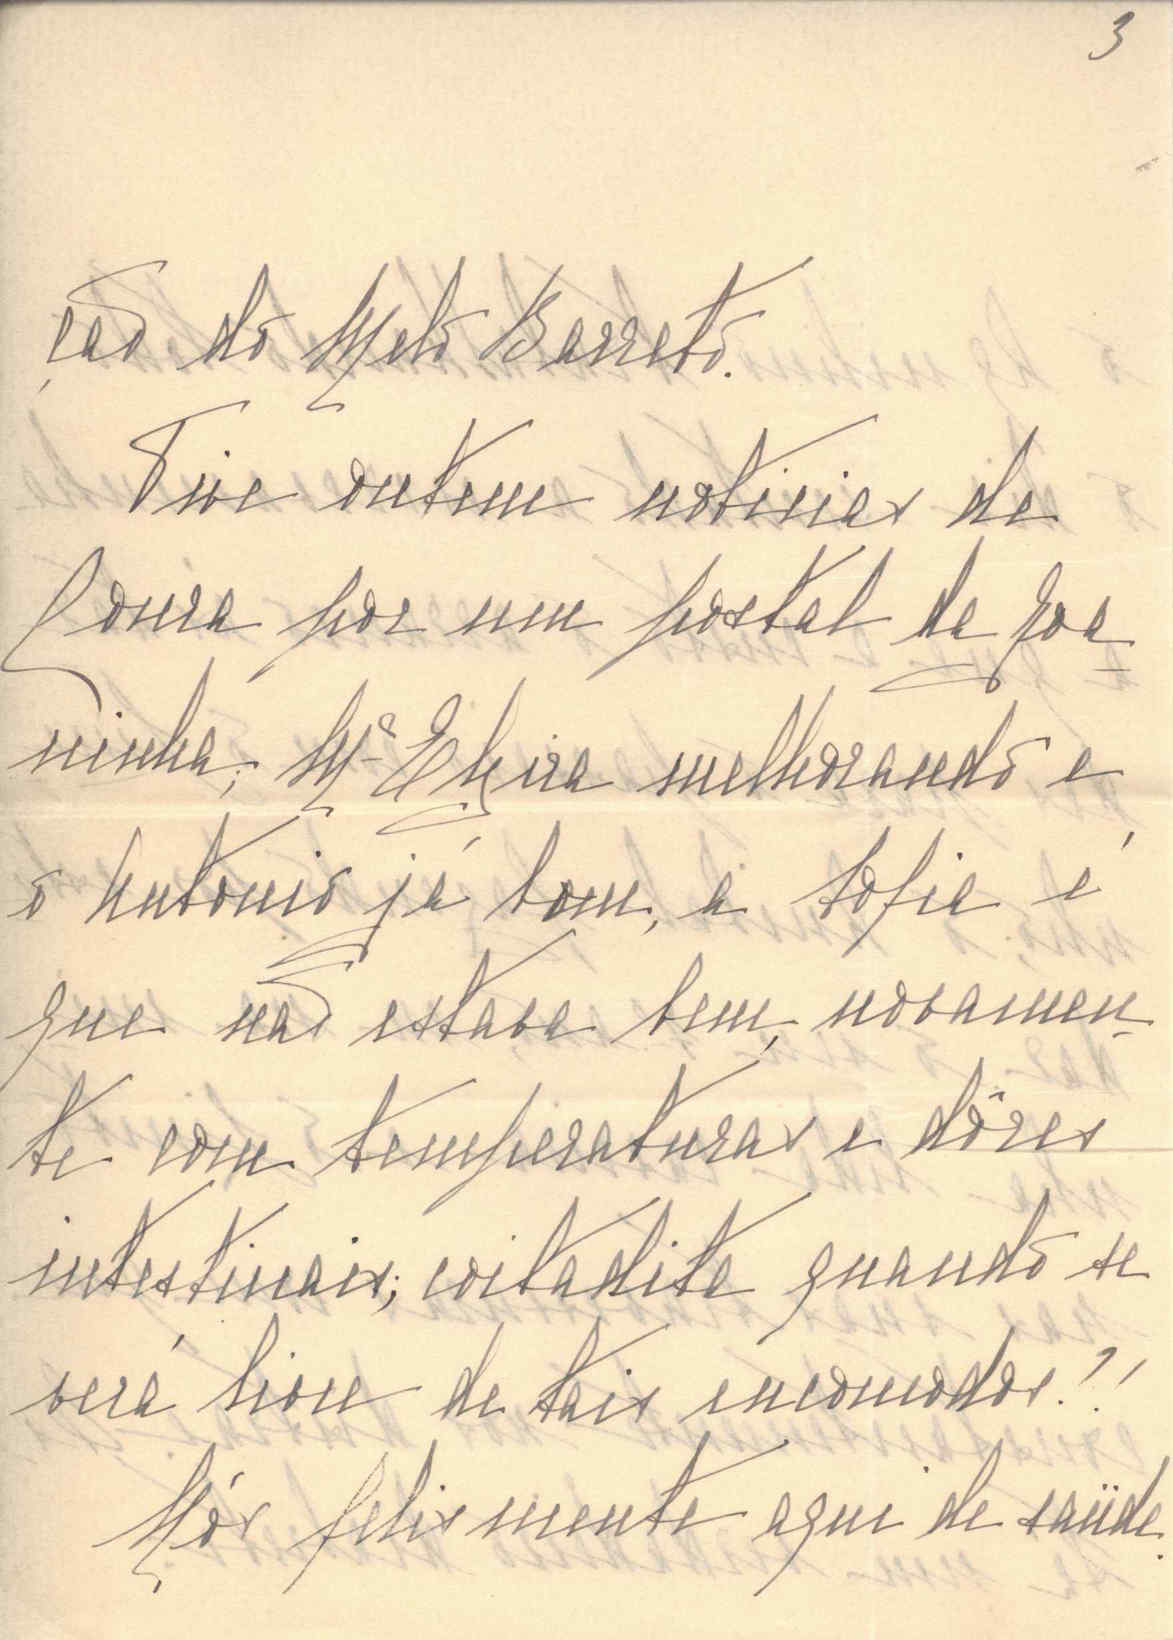 3
ção do Melo Barreto.
Tive ontem noticias de
Goura por um postal da Joa-
ninha; Mª Elvira melhorando e
o Antonio já bom, a Sofia é
que não estava bem, novamen-
te com temperaturas e dôres
intestinais; coitadita quando se
verá livre de tais encomodos?!
Nós felismente aqui de saüde.